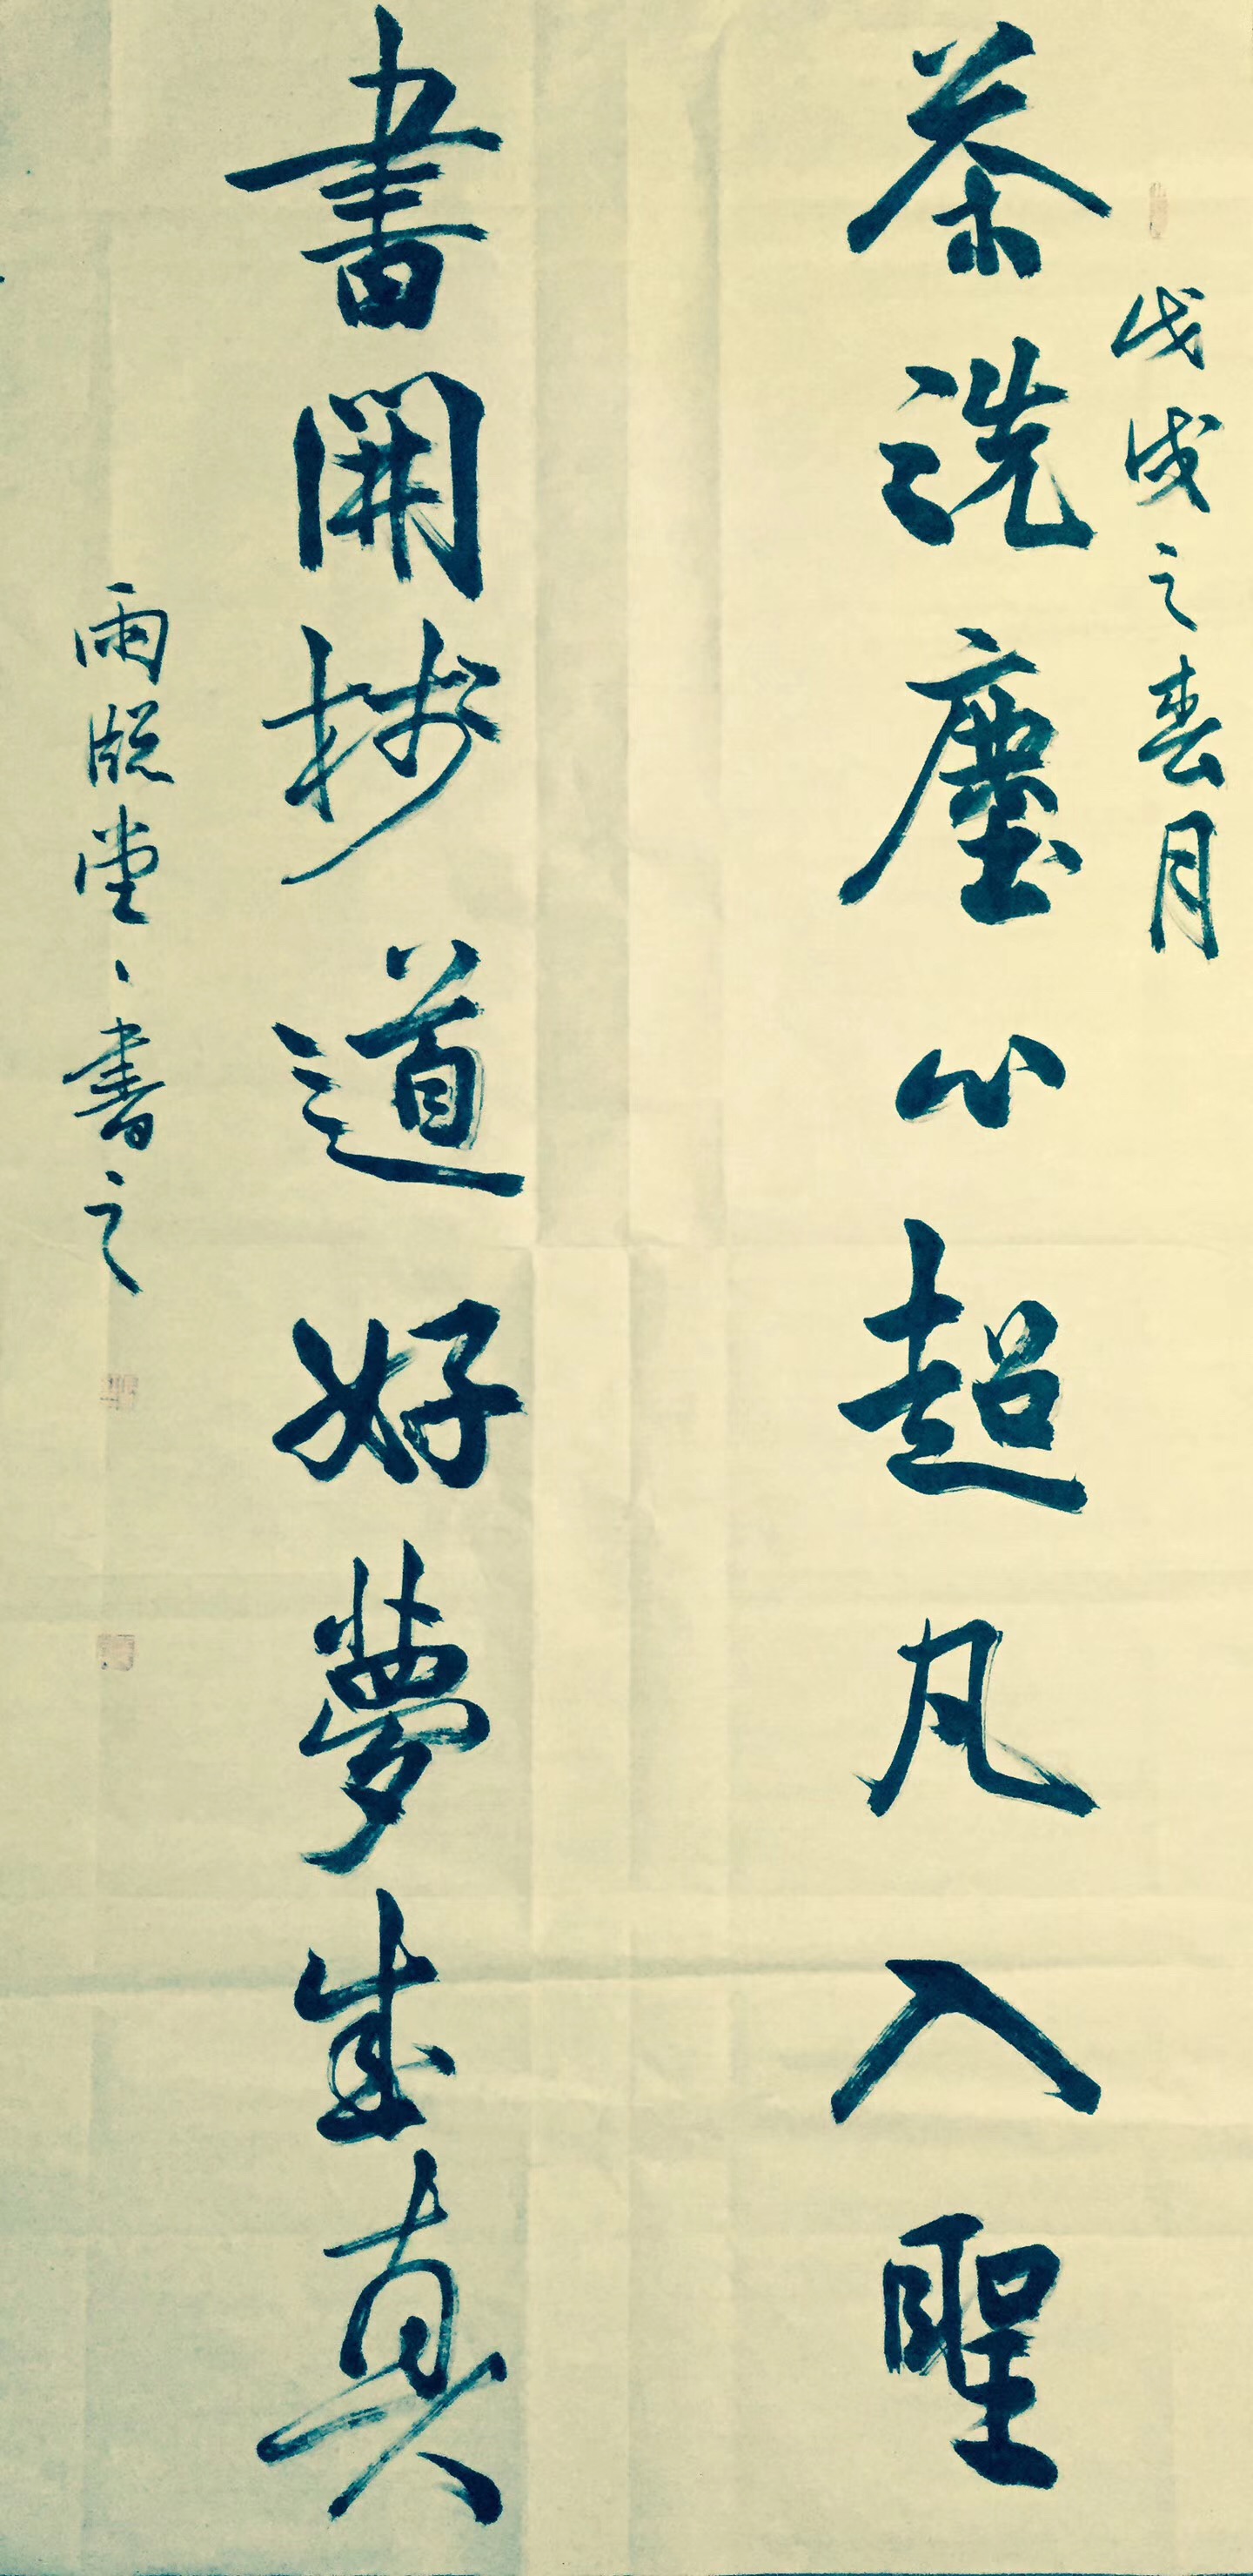 戊戌之春月
茶洗塵心超凡入聖
書開道好夢成真
雨堂書之